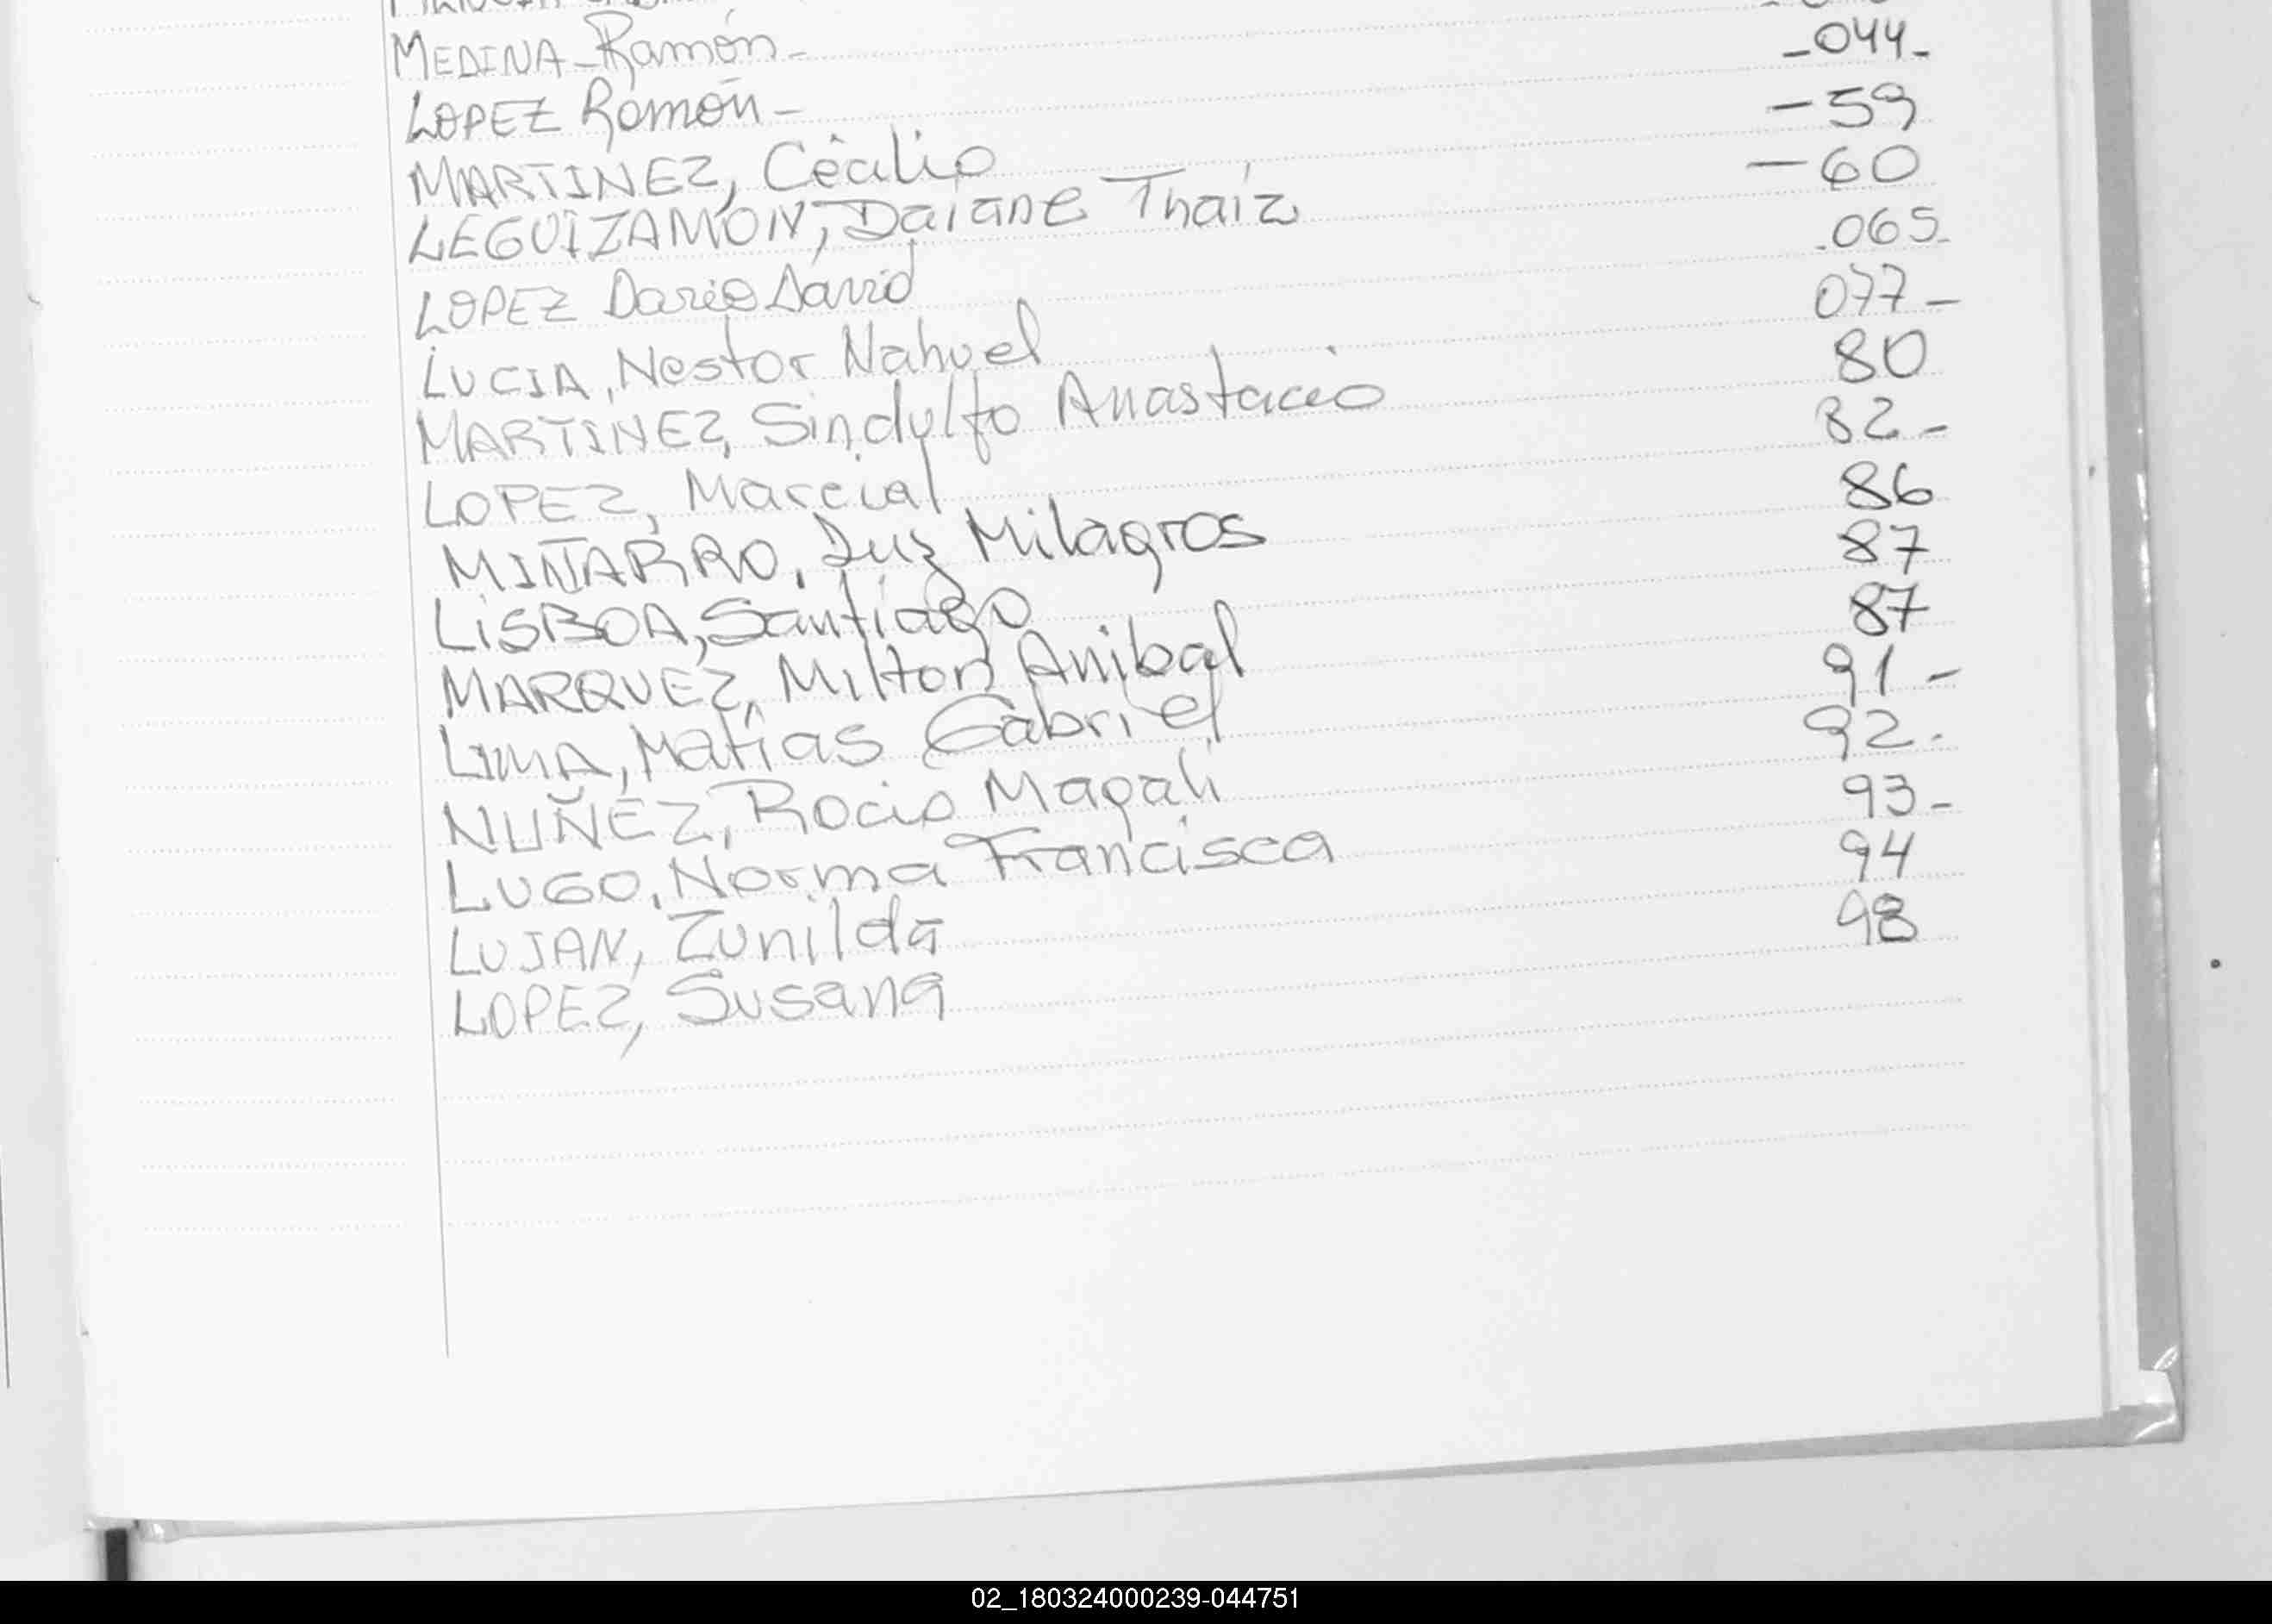 MEDINA - Ramón -
LOPEZ Ramón - - 044 -
MARTINEZ, Cecilio - 59
LEGUIZAMÓN, Daiane Thaiz - 60
LOPEZ Dario David . 065 -
LUCIA, Nestor Nahuel 077 -
MARTINEZ, Sindulfo Anastacio 80
LOPEZ, Marcial 82 -
MIÑARRO, Luz Milagros 86
LISBOA, Santiago 87
MARQUEZ, Milton Anibal 87
LIMA, Matías Gabriel 91 -
NUÑEZ, Rocio Magali 92 .
LUGO, Norma Francisca 93 -
LUJAN, Zunilda 94
LOPEZ, Susana 98
02_180324000239-044751